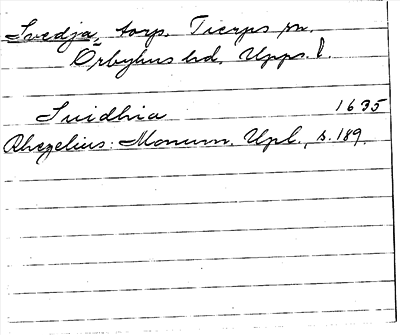 Svedja, torp. Tierps sn.
Örbyhus hd, Upps. l.
Suidhia 1635
Rhezelius: Monum. Upl., s. 189.